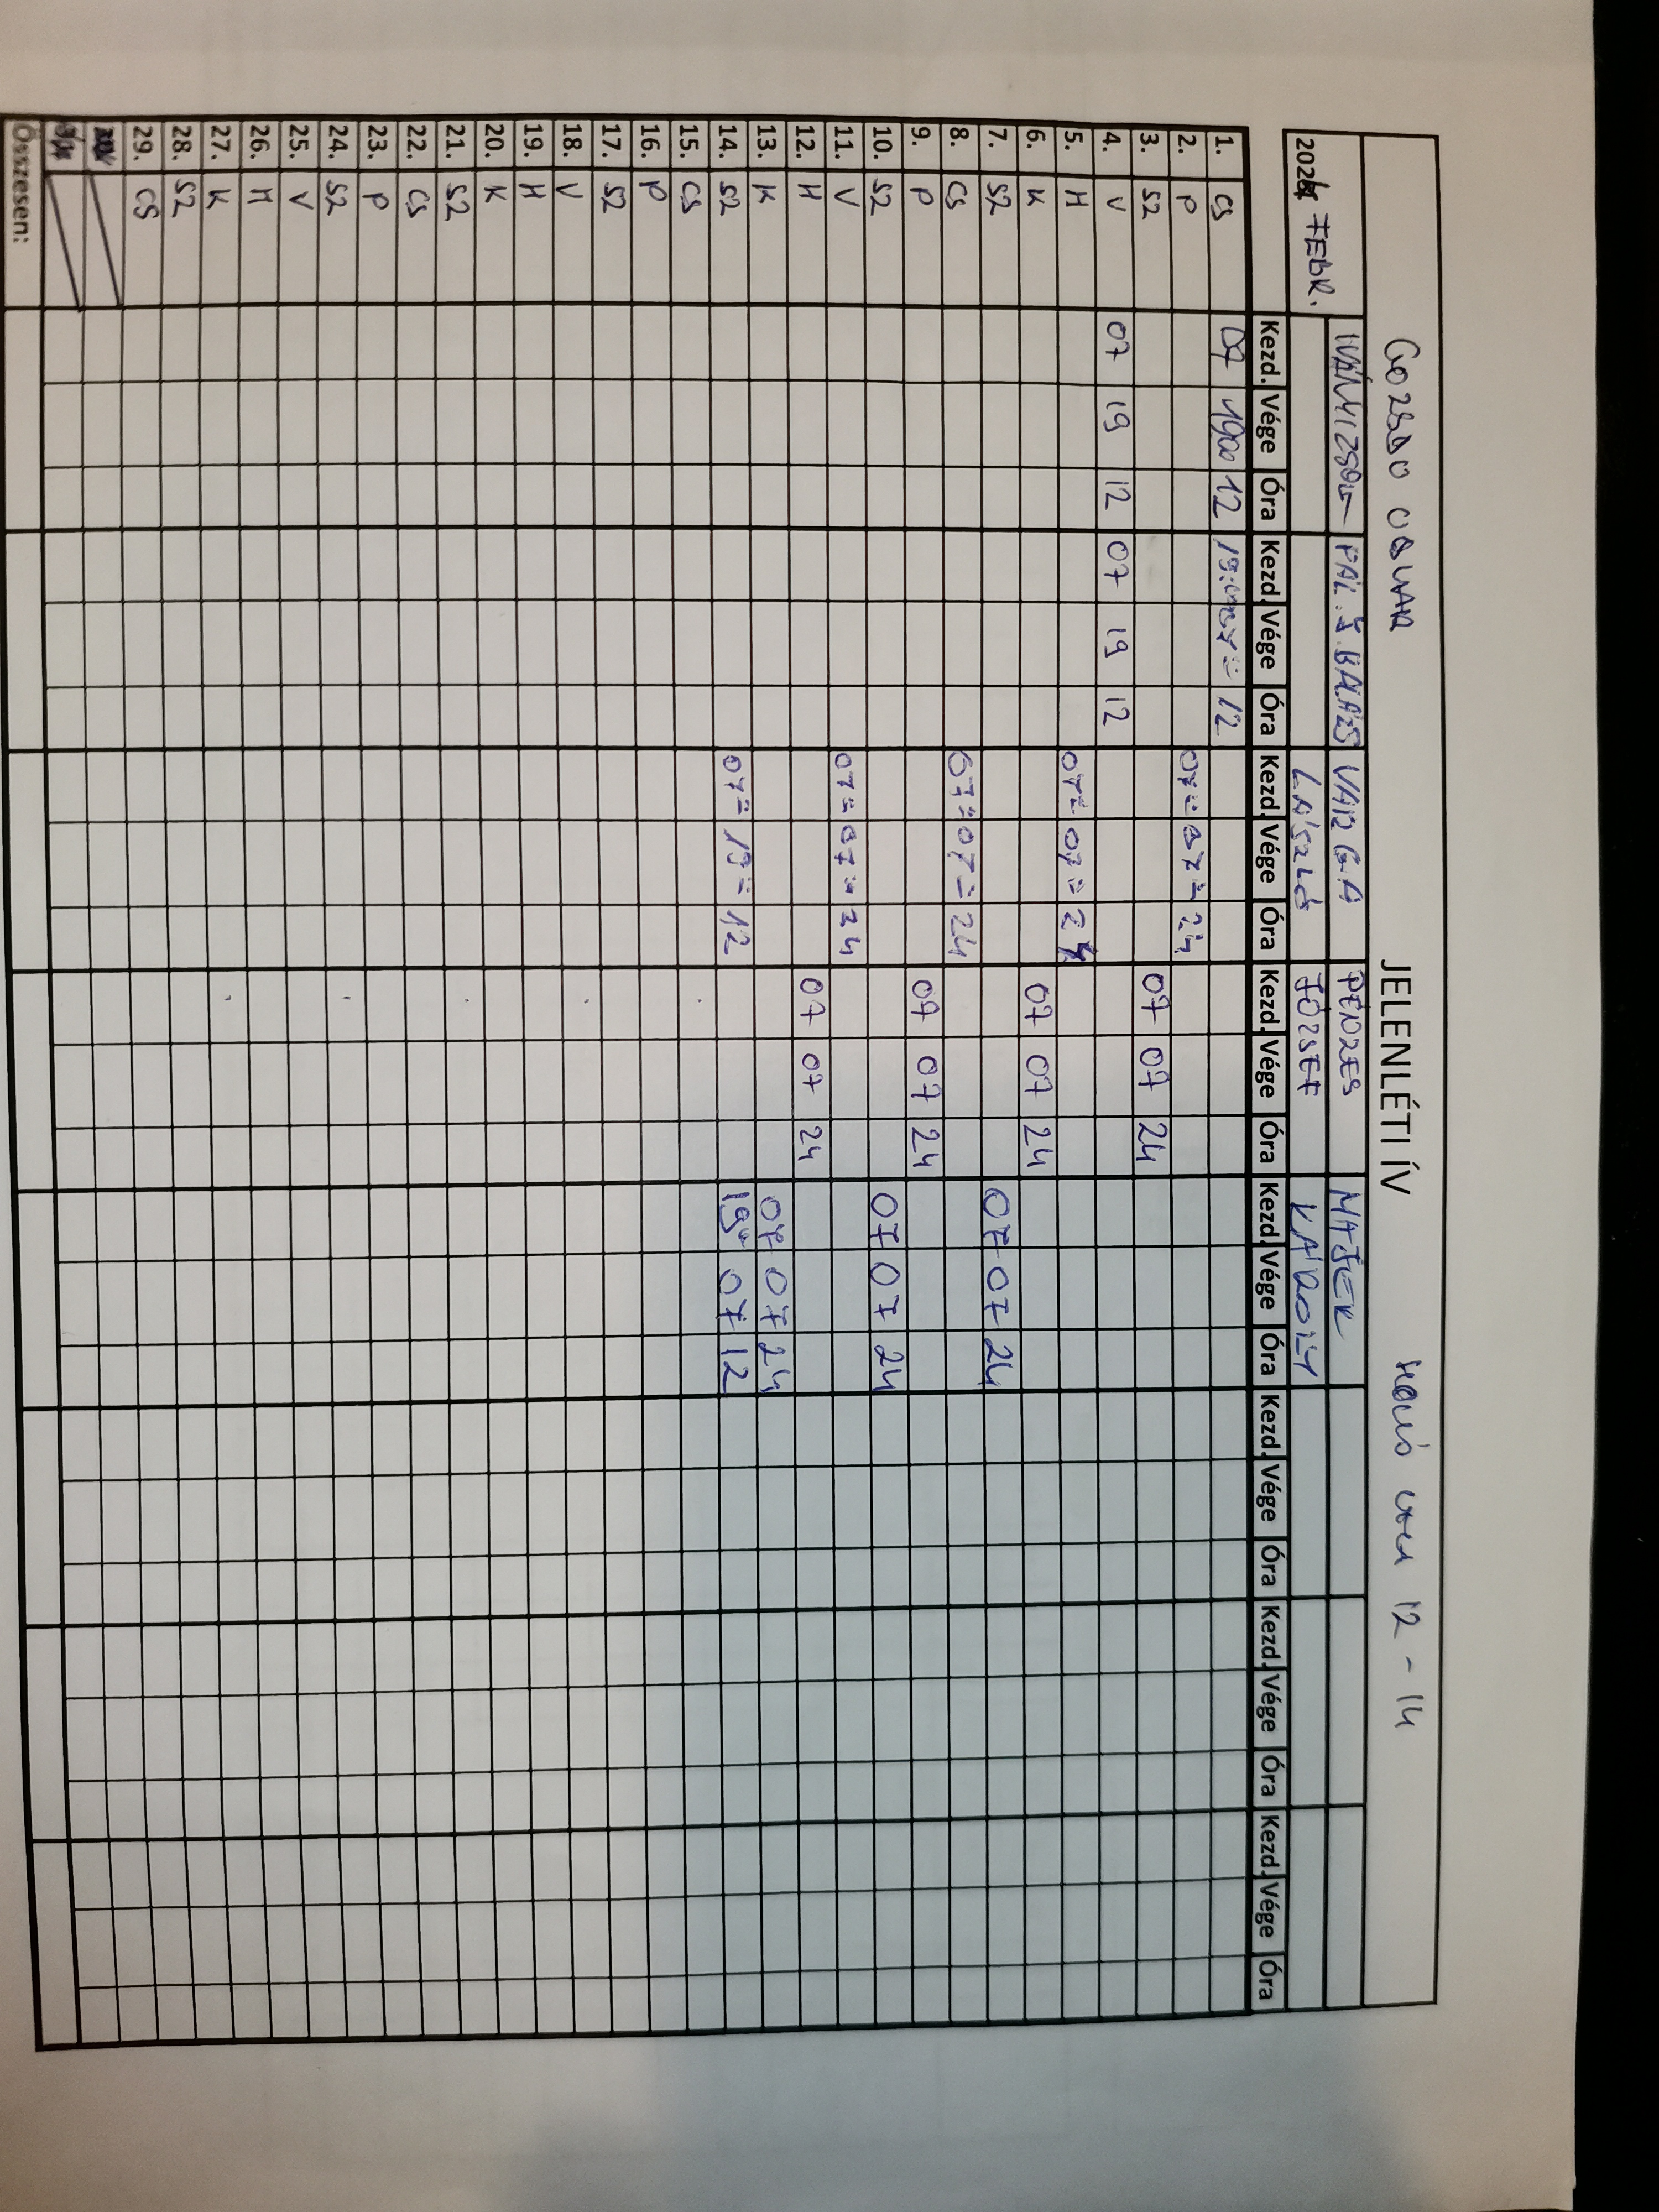 JELENLÉTI ÍV 12 - 14
PÁL. J. BALÁZS VARGA PÉNZES MAJER
2024 FEBR. LÁSZLÓ JÓZSEF KÁROLY
Kezd. Vége Óra Kezd. Vége Óra Kezd. Vége Óra Kezd. Vége Óra Kezd. Vége Óra Kezd. Vége Óra Kezd. Vége Óra Kezd. Vége Óra
1. CS 07 19 00 12 19:00 07 = 12
2. P 07 = 07 = 24
3. SZ 07 07 24
4. V 07 19 12 07 19 12
5. H 07 = 07 = 24
6. K 07 07 24
7. SZ 07 07 24
8. CS 07 = 07 = 24
9. P 07 07 24
10. SZ 07 07 24
11. V 07 = 07 = 24
12. H 07 07 24
13. K 07 07 24
14. SZ 07 = 19 = 12 19 07 12
15. CS
16. P
17. SZ
18. V
19. H
20. K
21. SZ
22. CS
23. P
24. SZ
25. V
26. H
27. K
28. SZ
29. CS
Összesen: